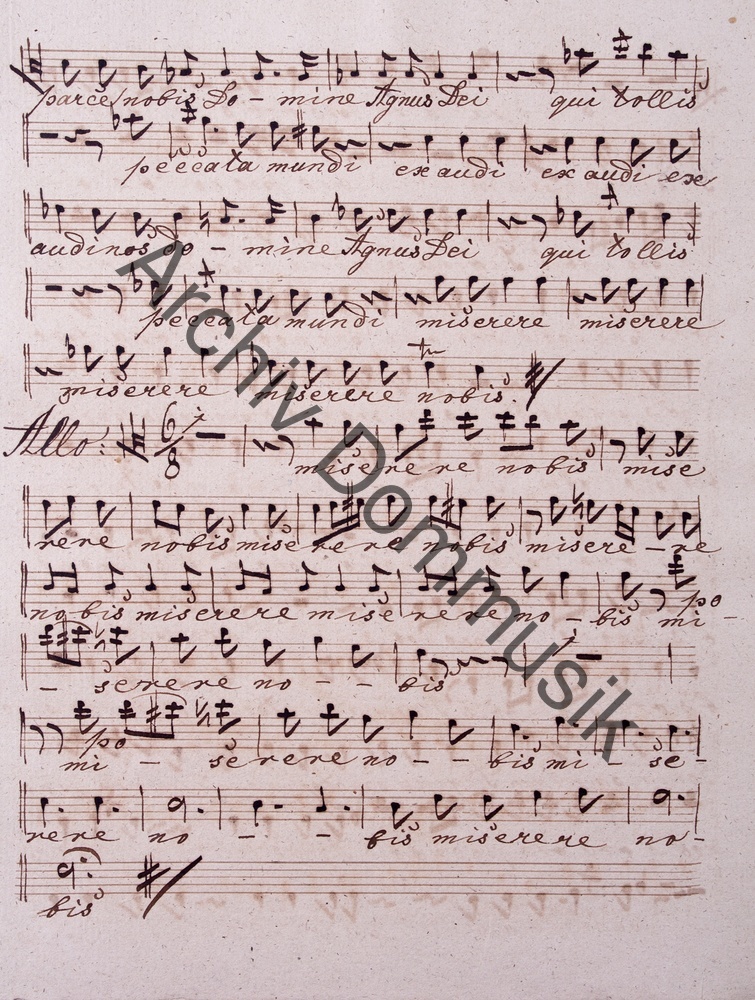 parce nobis Do - mine Agnus Dei qui tollis
peccata mundi exaudi exaudi ex
audi nos do - mine Agnus Dei qui tollis
peccata mundi miserere miserere
miserere miserere nobis.
Allo: 6/8 1 miserere nobis mise
rere nobis miserere nobis misere - re
nobis miserere miserere no - bis mi -
po
- serere no - - bis
1
po
mi - serere no - - bis mi - se -
rere no - - bis miserere no -
bis
Archiv Dommusik